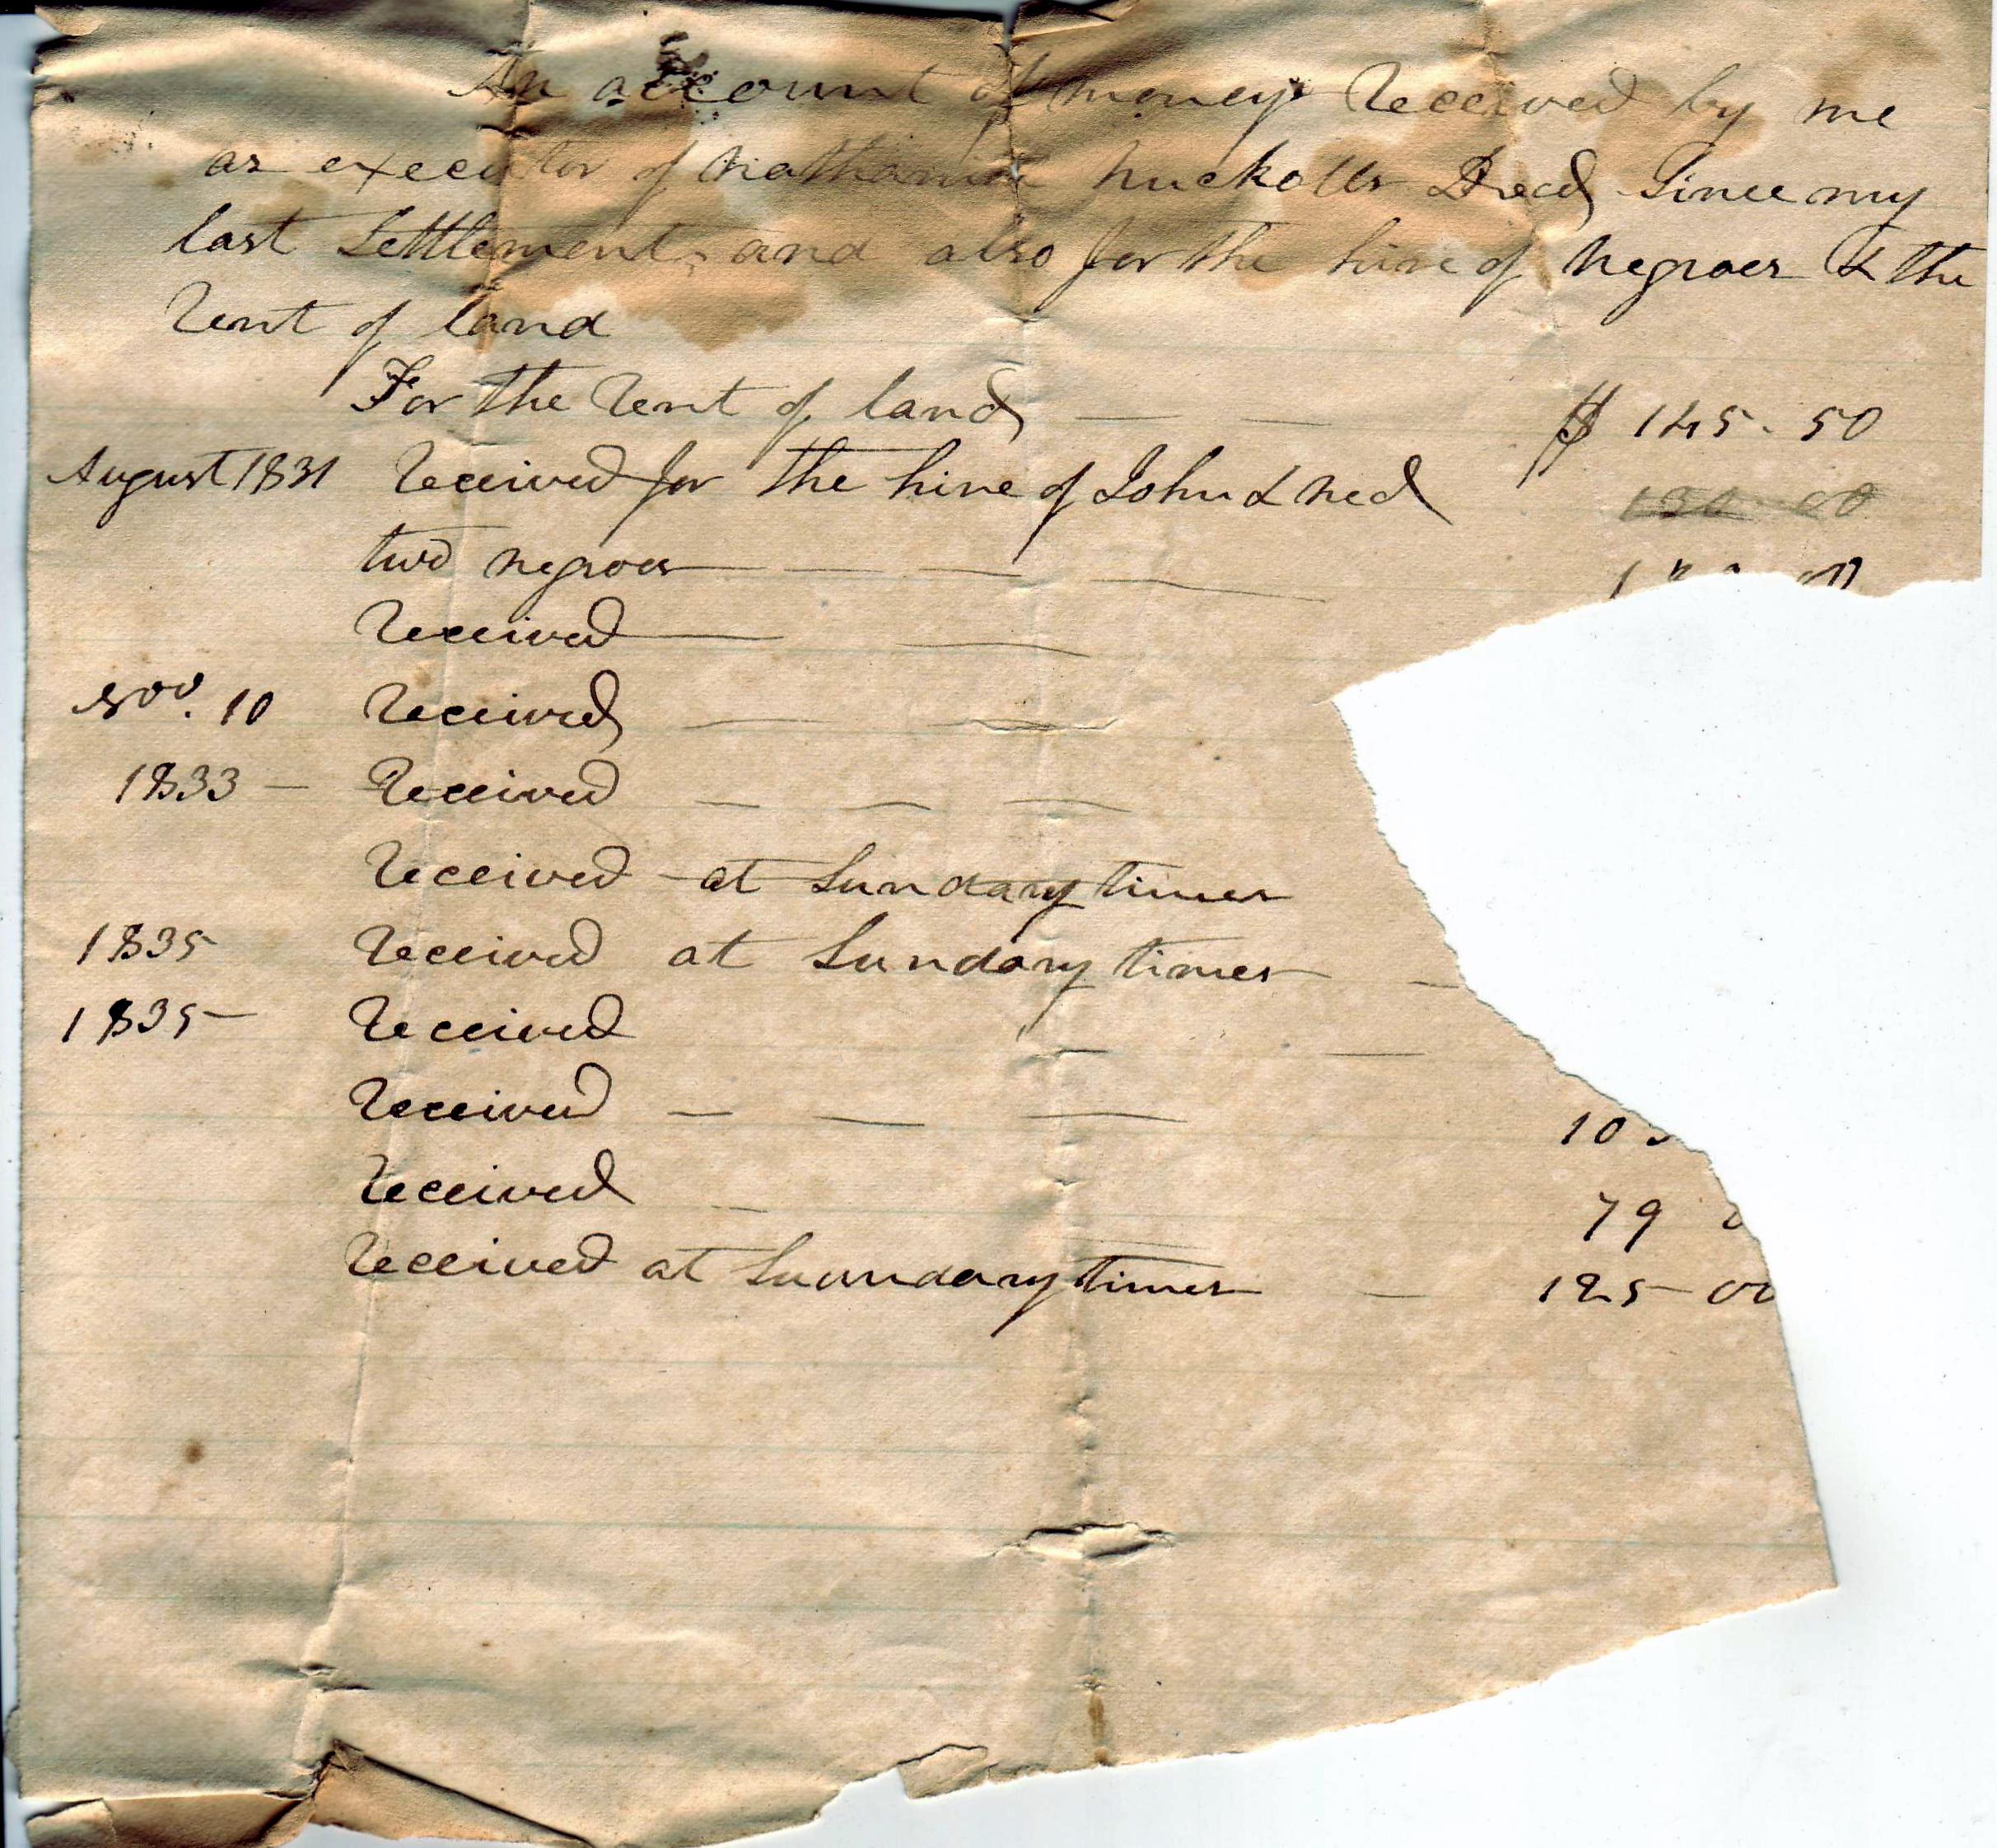 An account of money Received by me
as executor of Nathaniel Nuckolls Decd Since my
last Settlement, and also for the hire of Negroes & the
Rent of land
For the Rent of land $ 145. 50
August 1831 Received for the hire of John & Ned
two negroes
Received
Nov. 10 Received
1833 Received
Received at Sundary times
1835 Received at Sundary times
1835 Received
Received 10
Received 79
Received at Suundary times 125 00